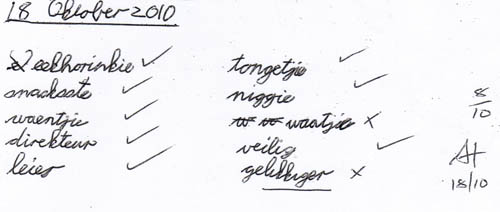 18 Oktober 2010
eekhorinkie ✓
snacksate ✓
waentjie ✓
direkteur ✓
leier ✓
tongetjie ✓
niggie ✓
waatjie x
veilig ✓
gelukkiger x
8/10
A+
18/10